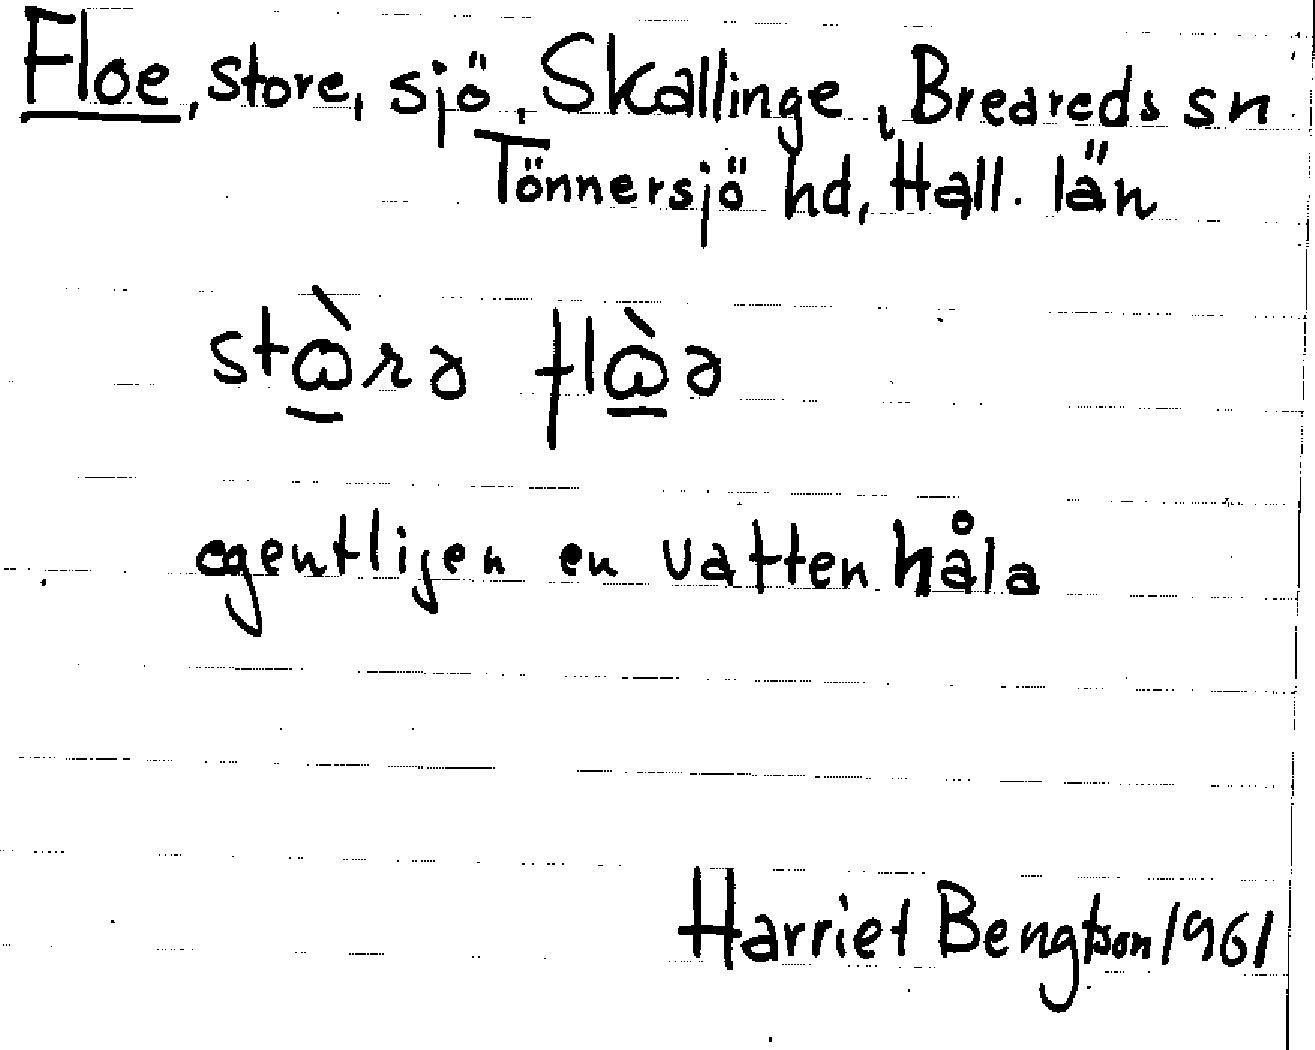 Floe, store, sjö, Skallinge, Breareds sn
Tönnersjö hd, Hall. län
stὼrə flὼə
egentligen en vattenhåla
Harriet Bengtson 1961